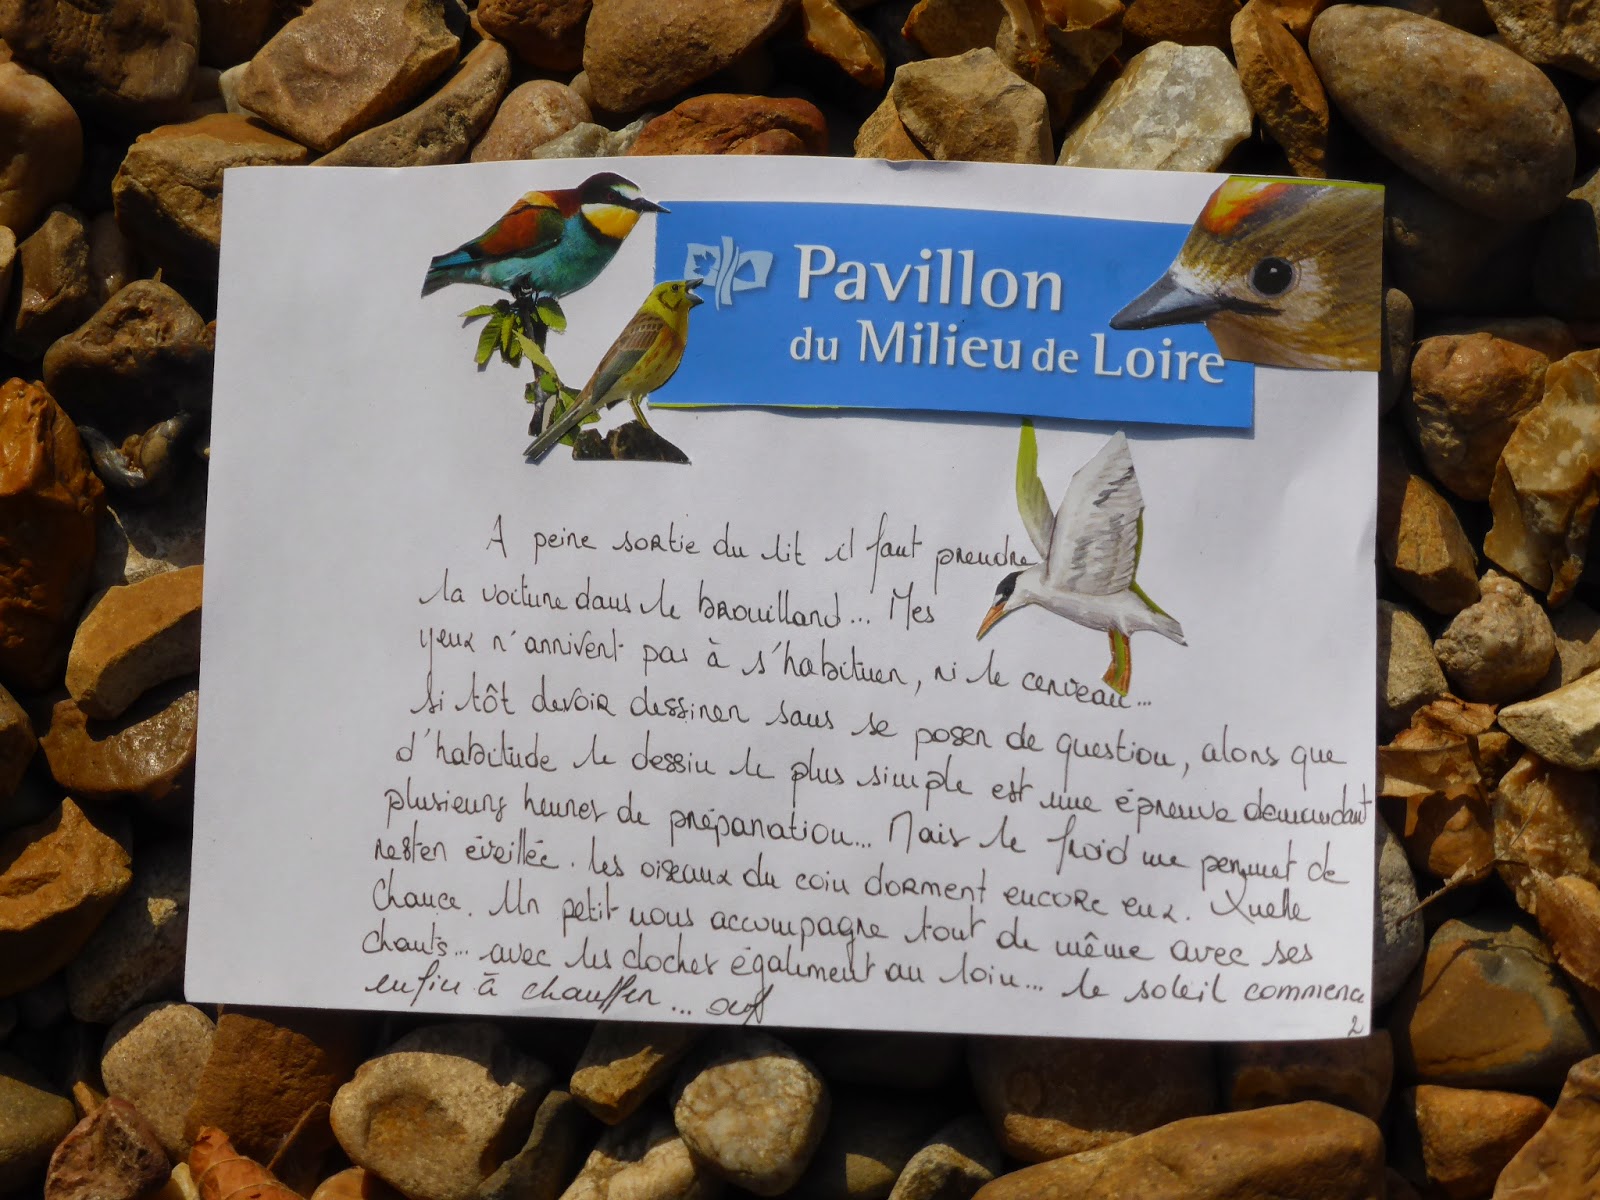 Pavillon
du Milieu de Loire
A peine sortie du lit il faut prendre
la voiture dans le brouillard... Mes
yeux n'arrivent pas à s'habituer, ni le cerveau...
Si tôt devoir dessiner sans se poser de question, alors que
d'habitude le dessin le plus simple est une épreuve demandant
plusieurs heures de préparation... Mais le froid me permet de
rester éveillée. Les oiseaux du coin dorment encore eux. Quelle
chance. Un petit nous accompagne tout de même avec ses
chants... avec les cloches également au loin... le soleil commence
enfin à chauffer... ouf
2